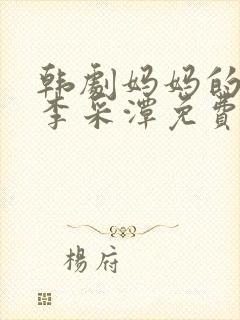 韩劇妈妈的
李采潭免費
楊府